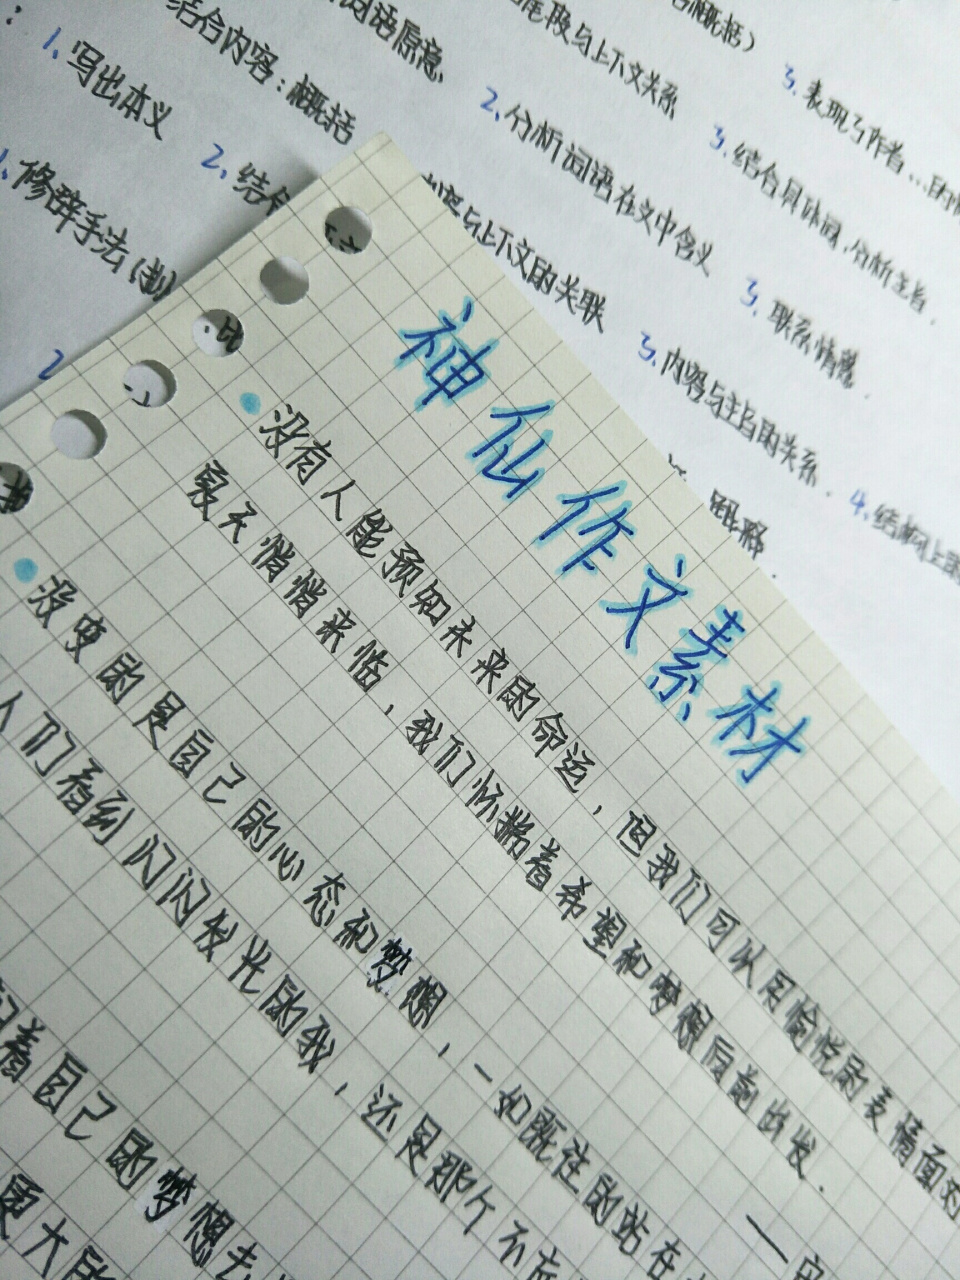 1、写出本义
结合内容：概括
词语原意
尾段与上下文关系
3、表现了作者…
1、修辞手法
2、结合
2、分析词语在文中含义
3、结合具体词，分析主旨.
内容与上下文的关联
3、联系情感.
3、内容与主旨的关系.
4、结构上
神仙作文素材
没有人能预知未来的命运，但我们可以用愉悦的表情面对
夏天悄悄来临，我们怀揣着希望和梦想向前出发.
没变的是自己的心态和梦想，一如既往的站在
人们看到闪闪发光的我，还是那个不忘
着自己的梦想去
更大的